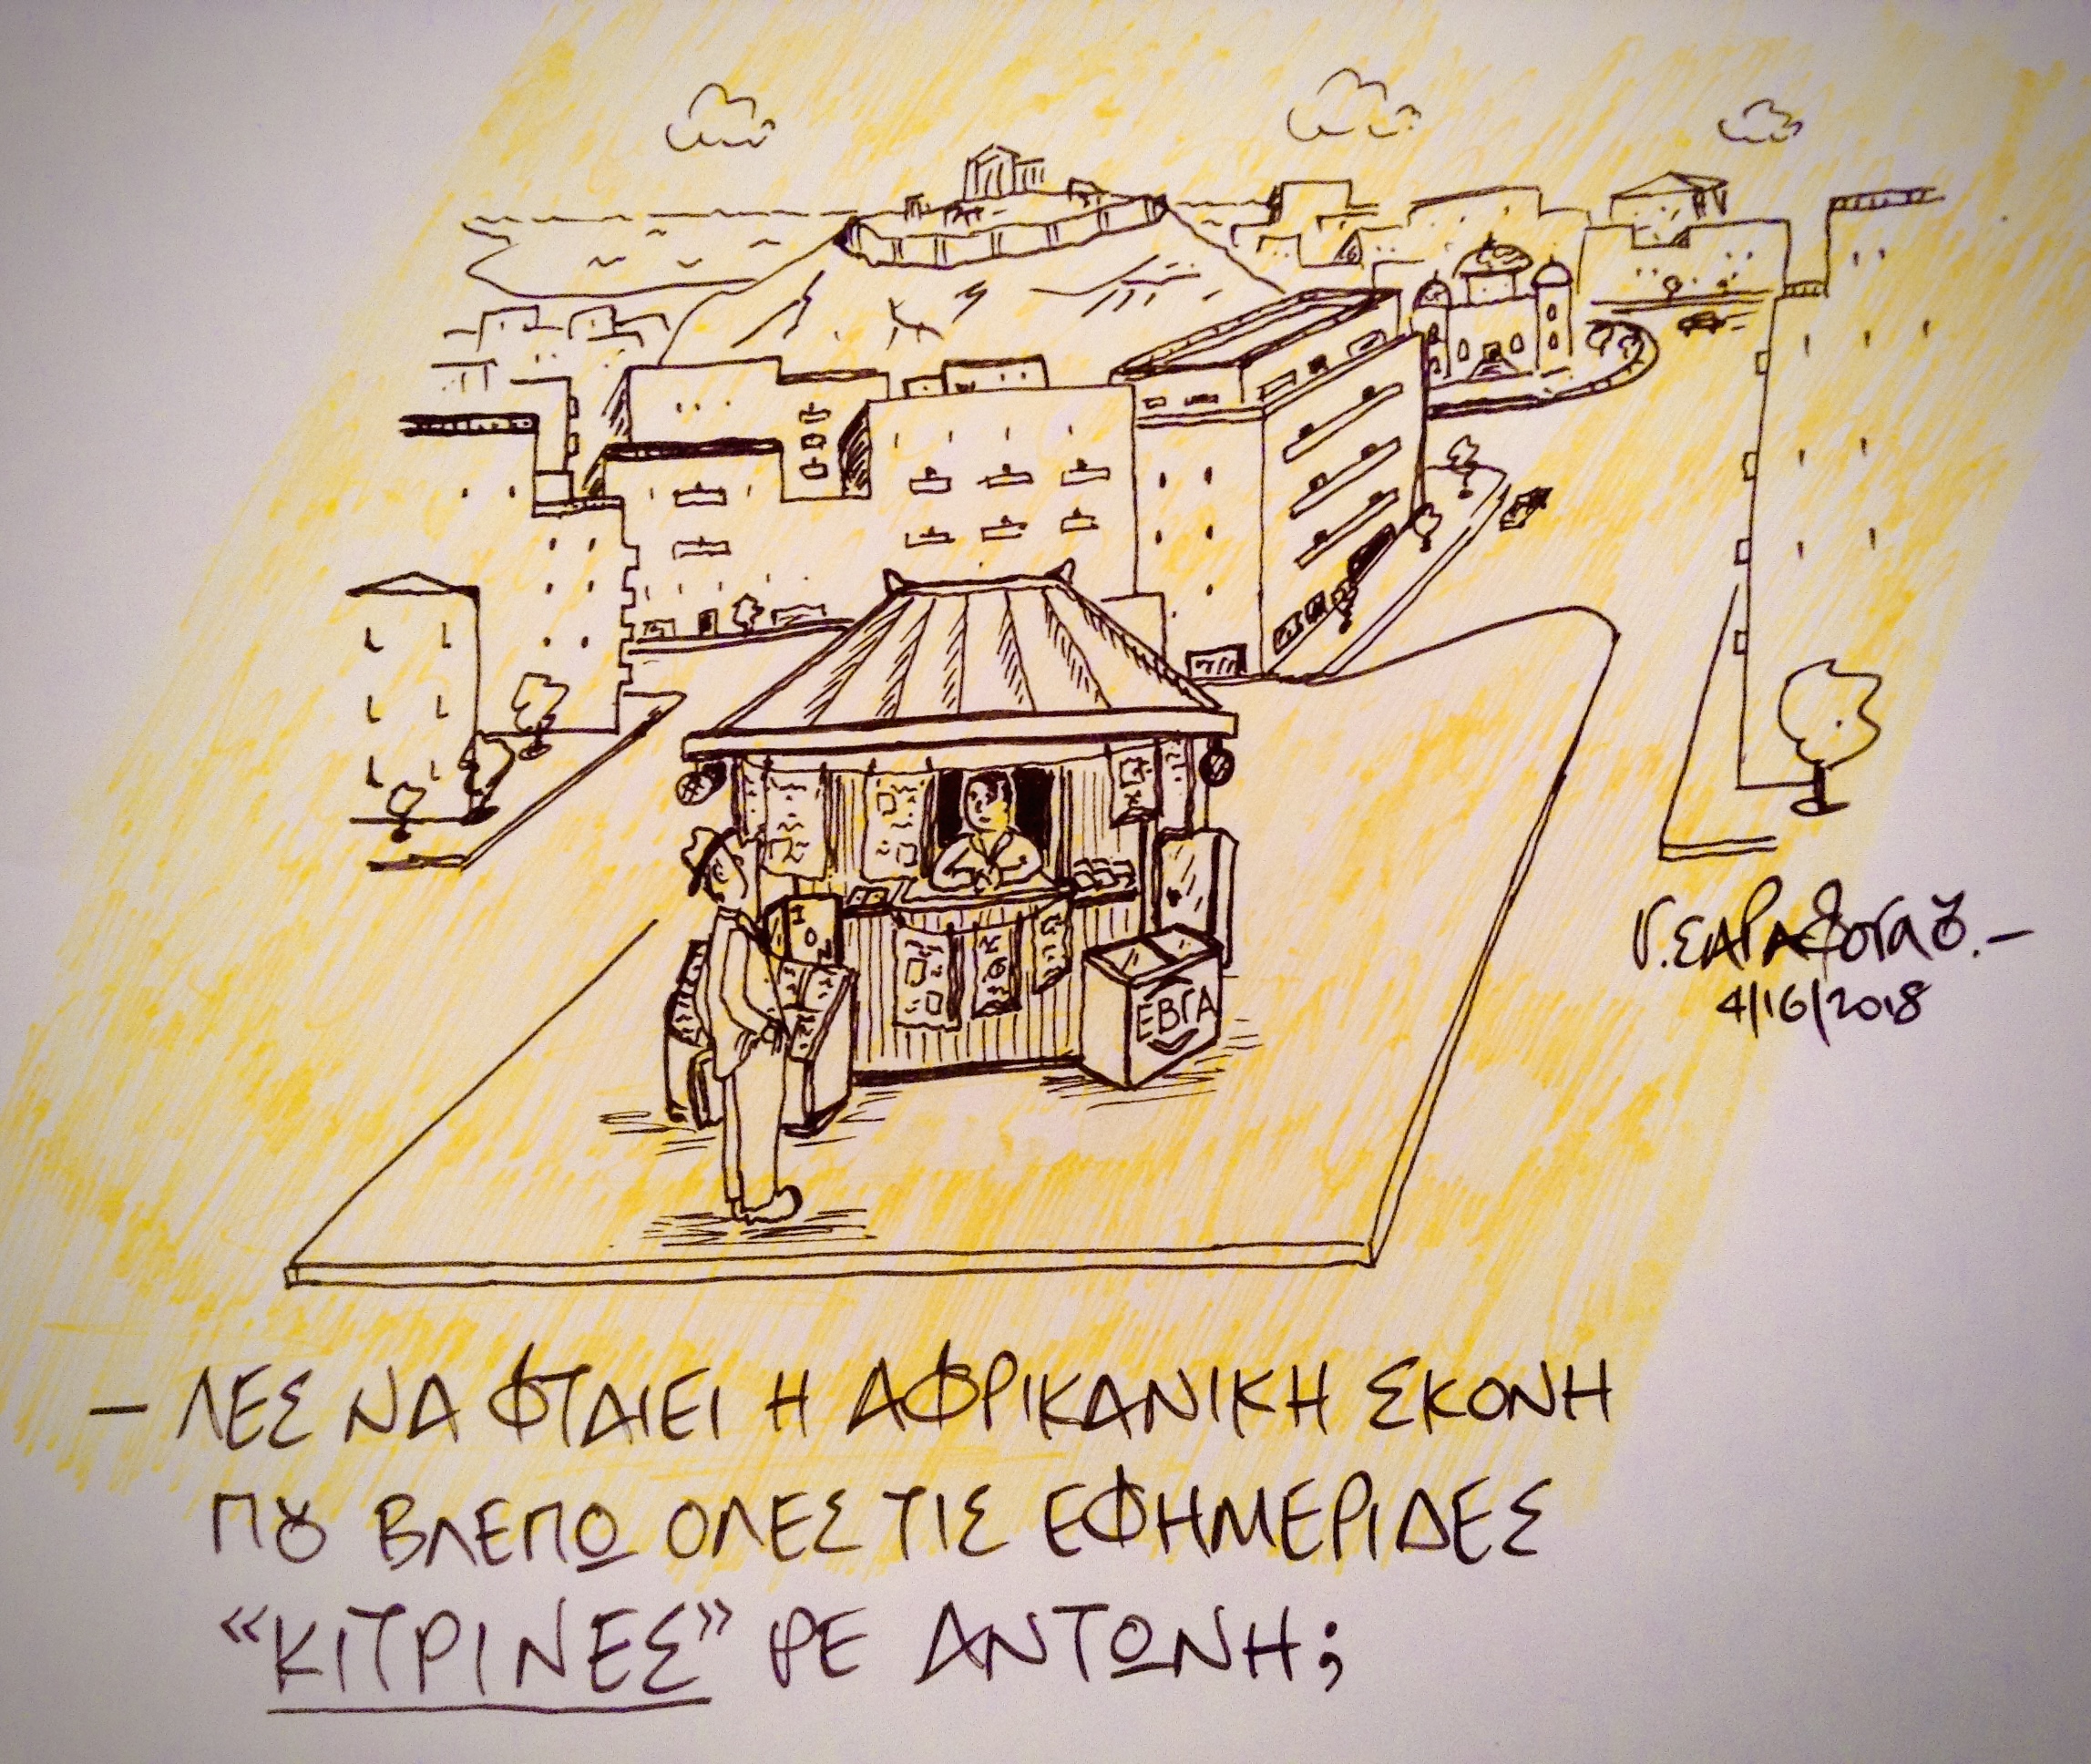 ΕΒΓΑ
4/16/2018
– ΛΕΣ ΝΑ ΦΤΑΙΕΙ Η ΑΦΡΙΚΑΝΙΚΗ ΣΚΟΝΗ
ΠȢ ΒΛΕΠΩ ΟΛΕΣ ΤΙΣ ΕΦΗΜΕΡΙΔΕΣ
“ΚΙΤΡΙΝΕΣ” ΡΕ ΑΝΤΩΝΗ;